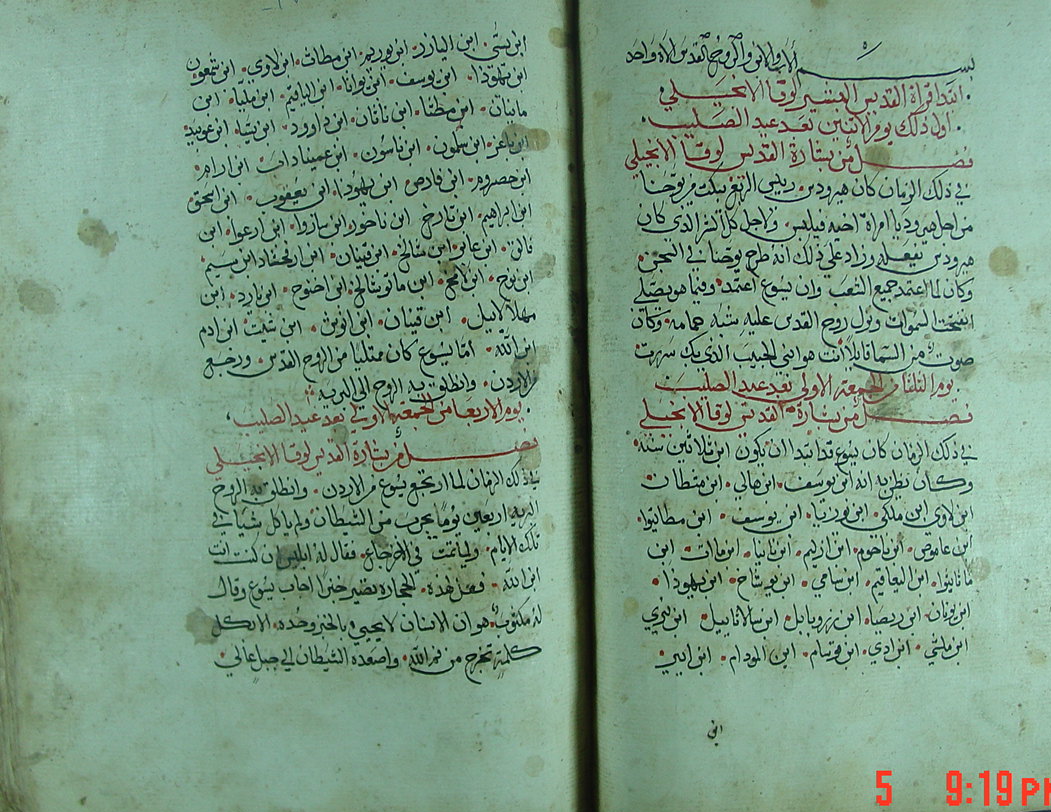 بسم الاب والابن والروح القدس الاه واحد
ابتدا قراة القديس البشير لوقا الانجيلي
اول ذلك يوم الاثنين بعد عيد الصليب
فصل من بشارة القديس لوقا الانجيلي
في ذلك الزمان كان هيرودس رييس الربع يبكت من يوحنا
من اجل هيروديا امراة اخيه فيلبس واجل كل الشر الذي كان
هيرودس يفعله وزاد على ذلك انه طرح يوحنا في السجن
وكان لما اعتمد جميع الشعب وان يسوع اعتمد وفيما هو يصلي
انفتحت السموات ونزل روح القدس عليه شبه حمامه وكان
صوت من السما قايلا انت هو ابني الحبيب الذي بك سررت
يوم الثلثا من الجمعه الاولى بعد عيد الصليب
فصل من بشارة القديس لوقا الانجيلي
في ذلك الزمان كان يسوع قد ابتدا ان يكون ابن ثلاثين سنه
وكان يظن به انه ابن يوسف ابن هالي ابن متطات
ابن لاوي ابن ملكي ابن يوسف ابن مطاتيوا
ابن عاموص ابن ناحوم ابن ابن ماات ابن
ماتاتيوا ابن ابن شامي ابن ابن يهوذا
ابن يونان ابن ريصا ابن زروبابل ابن سالاتاييل ابن نيري
ابن ملشي ابن ادي ابن قوسام ابن المودام ابن ايير
ابن
ابن يسى ابن اليازر ابن يوريم ابن مطات ابن لاوي ابن شمعون
ابن يهوذا ابن يوسف ابن يونان ابن الياقيم ابن مليا ابن
ماينان ابن مطتا ابن ناتان ابن داوود ابن يسا ابن عوبيد
ابن باعز ابن سلمون ابن ناسون ابن عميناداب ابن ارام
ابن حصروم ابن فارص ابن يهوذا ابن يعقوب ابن اسحق
ابن ابراهيم ابن تارخ ابن ناخور ابن ساروا ابن ارعوا ابن
فالق ابن عابر ابن شالخ ابن قينان ابن ارفخشاد ابن سيم
ابن نوح ابن لامخ ابن ماتوشالخ ابن اخنوخ ابن يارد ابن
مهلالاييل ابن قينان ابن انوش ابن شيت ابن ادم
ابن الله اما يسوع كان ممتليا من الروح القدس ورجع
من الاردن وانطلق به الروح الى البريه
يوم الاربعا من الجمعه الاولى بعد عيد الصليب
فصل من بشارة القديس لوقا الانجيلي
في ذلك الزمان لما ارتجع يسوع من الاردن وانطلق به الروح
البريه اربعين يوما يجرب من الشيطان ولم ياكل شيا في
تلك الايام ولما تمت جاع فقال له ابليس ان كنت انت
ابن الله فقل لهذه الحجاره تصير خبزا اجاب يسوع وقال
له مكتوب هو ان الانسان لا يحيي بالخبز وحده الا بكل
كلمة تخرج من فم الله واصعده الشيطان الى جبل عالي
5 9:19 PM